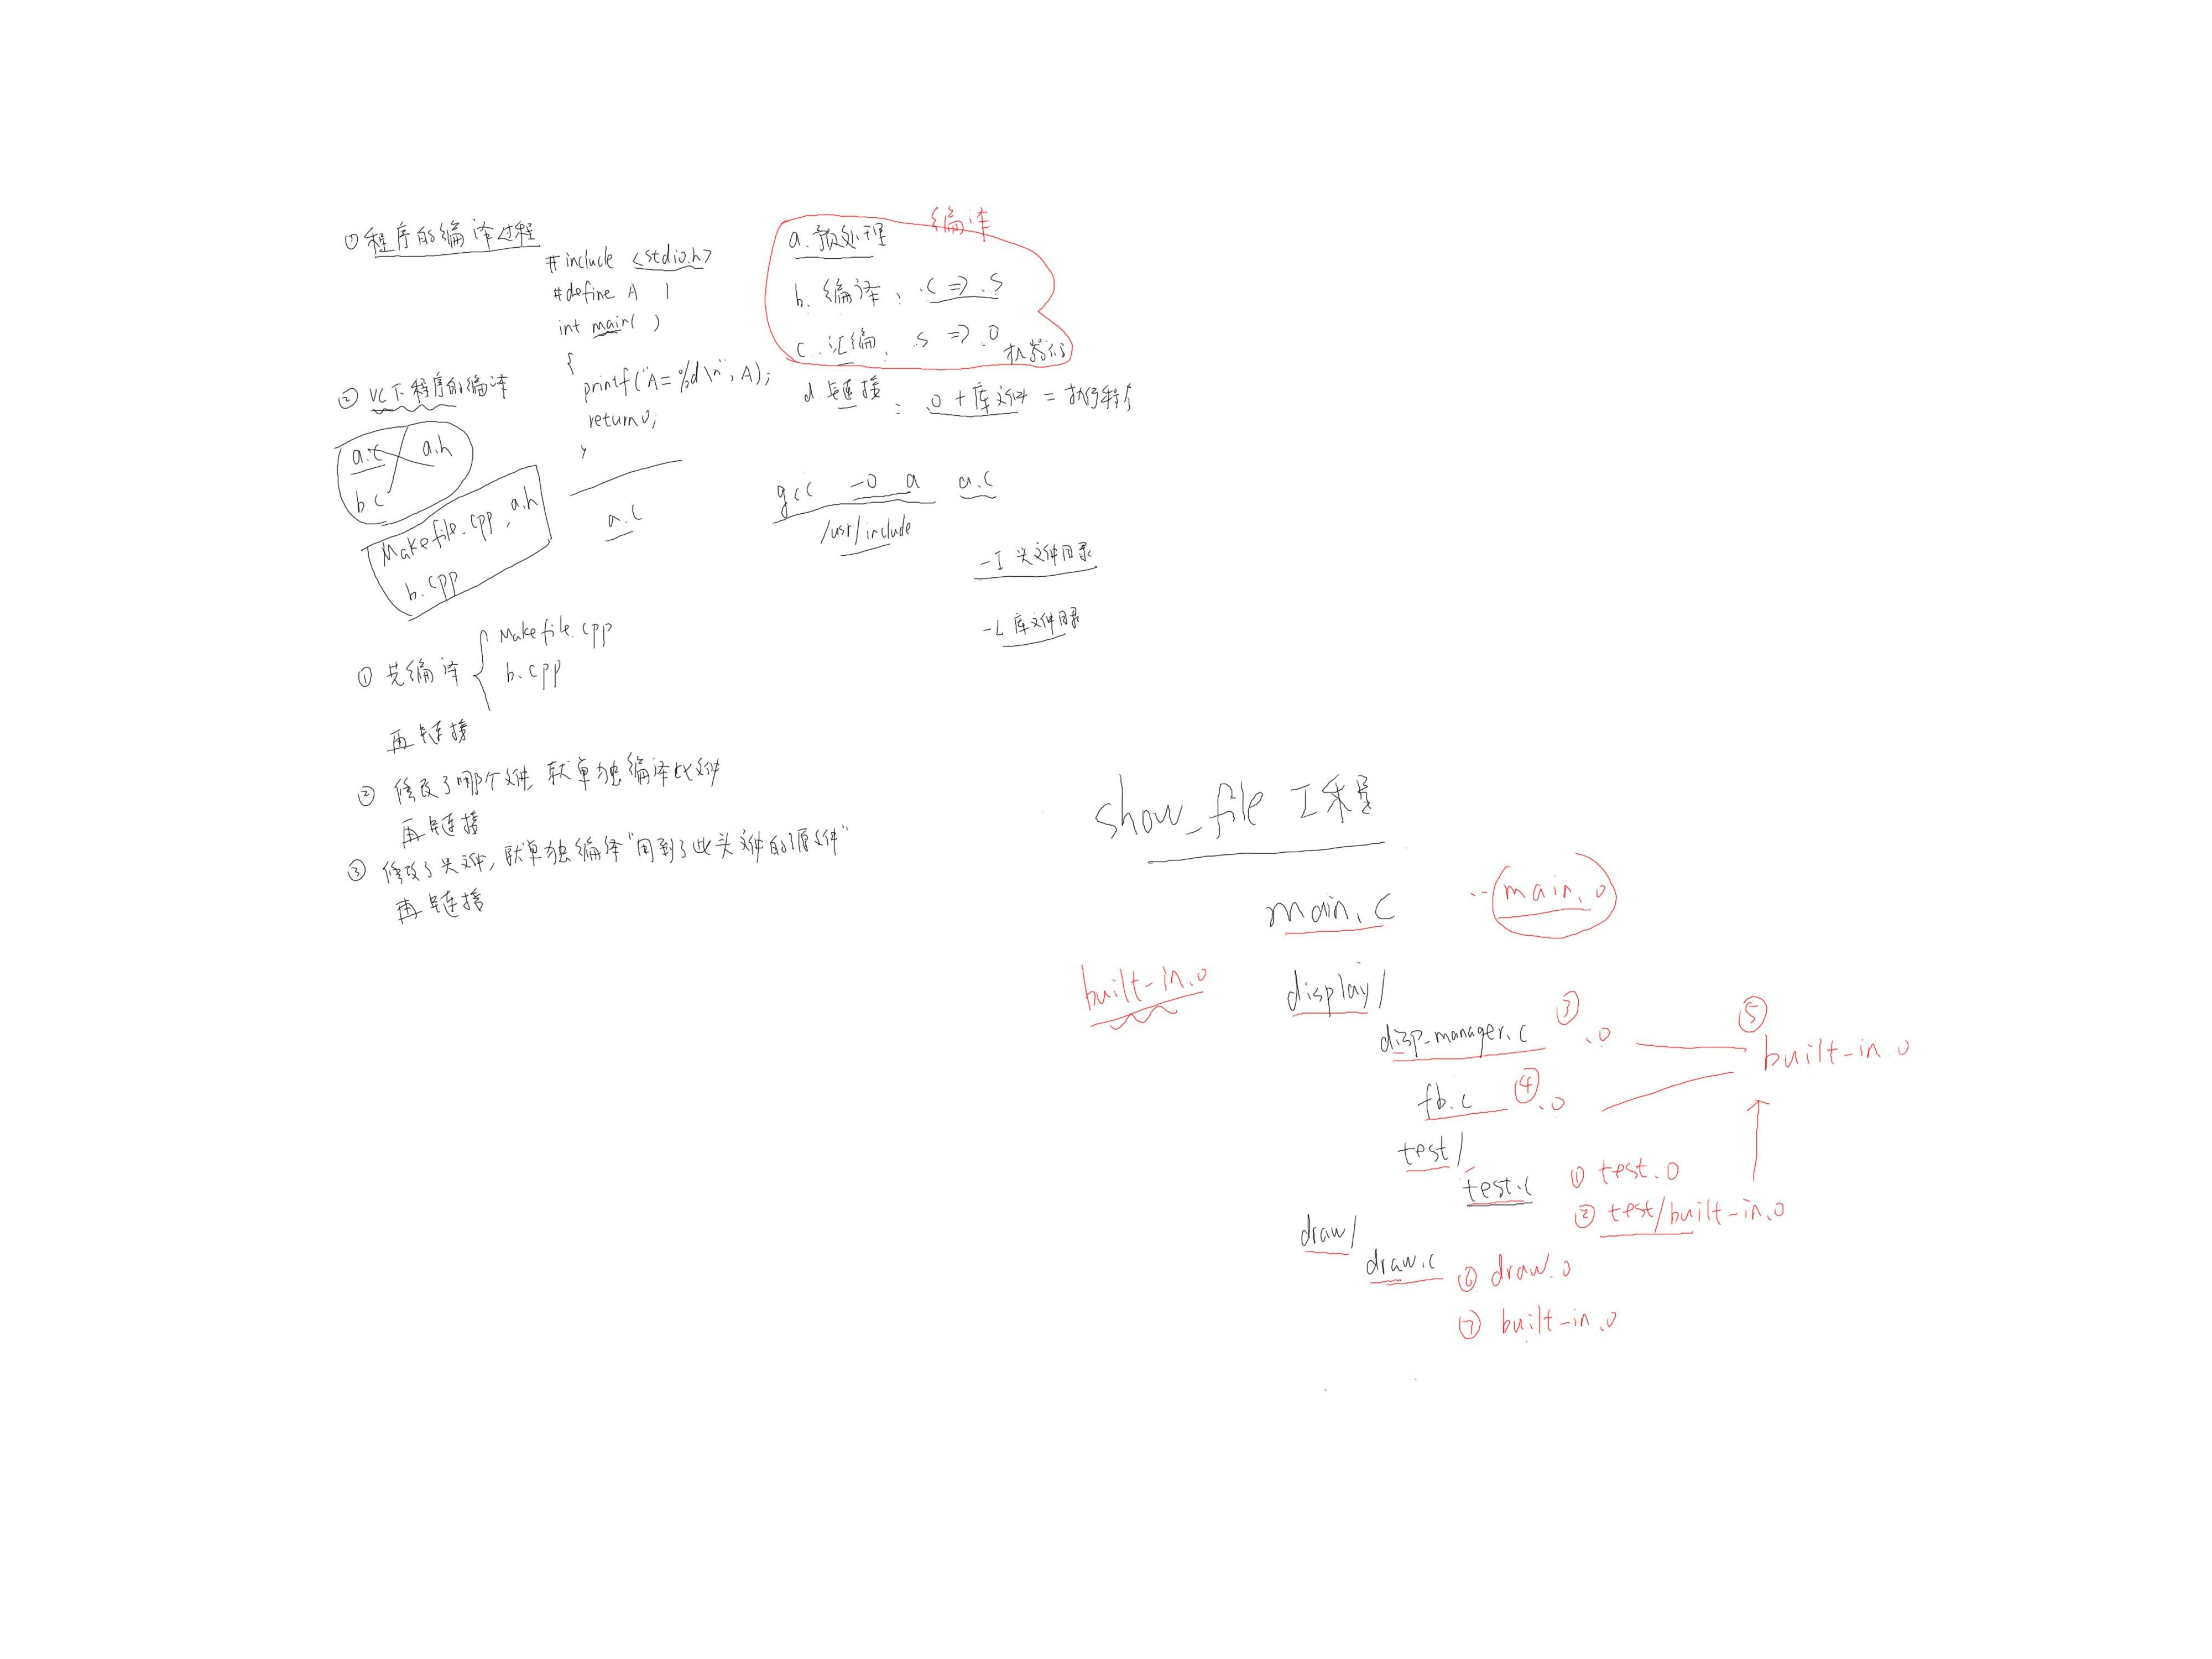 ①程序的编译过程
#include <stdio.h>
#define A 1
int main( )
{
printf("A=%d\n", A);
return 0;
}
a.c
编译
a.预处理
b. 编译: .c => .s
c. 汇编: .s => .o 机器码
d. 链接: .o + 库文件 = 执行程序
gcc -o a a.c
/usr/include
-I 头文件目录
-L 库文件目录
② VC下程序的编译
a.c a.h
b.c
Makefile.cpp, a.h
b.cpp
① 先编译 { Makefile.cpp
b.cpp
再链接
② 修改了哪个文件, 就单独编译此文件
再链接
③ 修改了头文件, 就单独编译"用到了此头文件的源文件"
再链接
show_file 工程
main.c main.o
built-in.o
display/
disp_manager.c ③ .o
⑤ built-in.o
fb.c ④ .o
test/
test.c ① test.o
② test/built-in.o
draw/
draw.c ⑥ draw.o
⑦ built-in.o